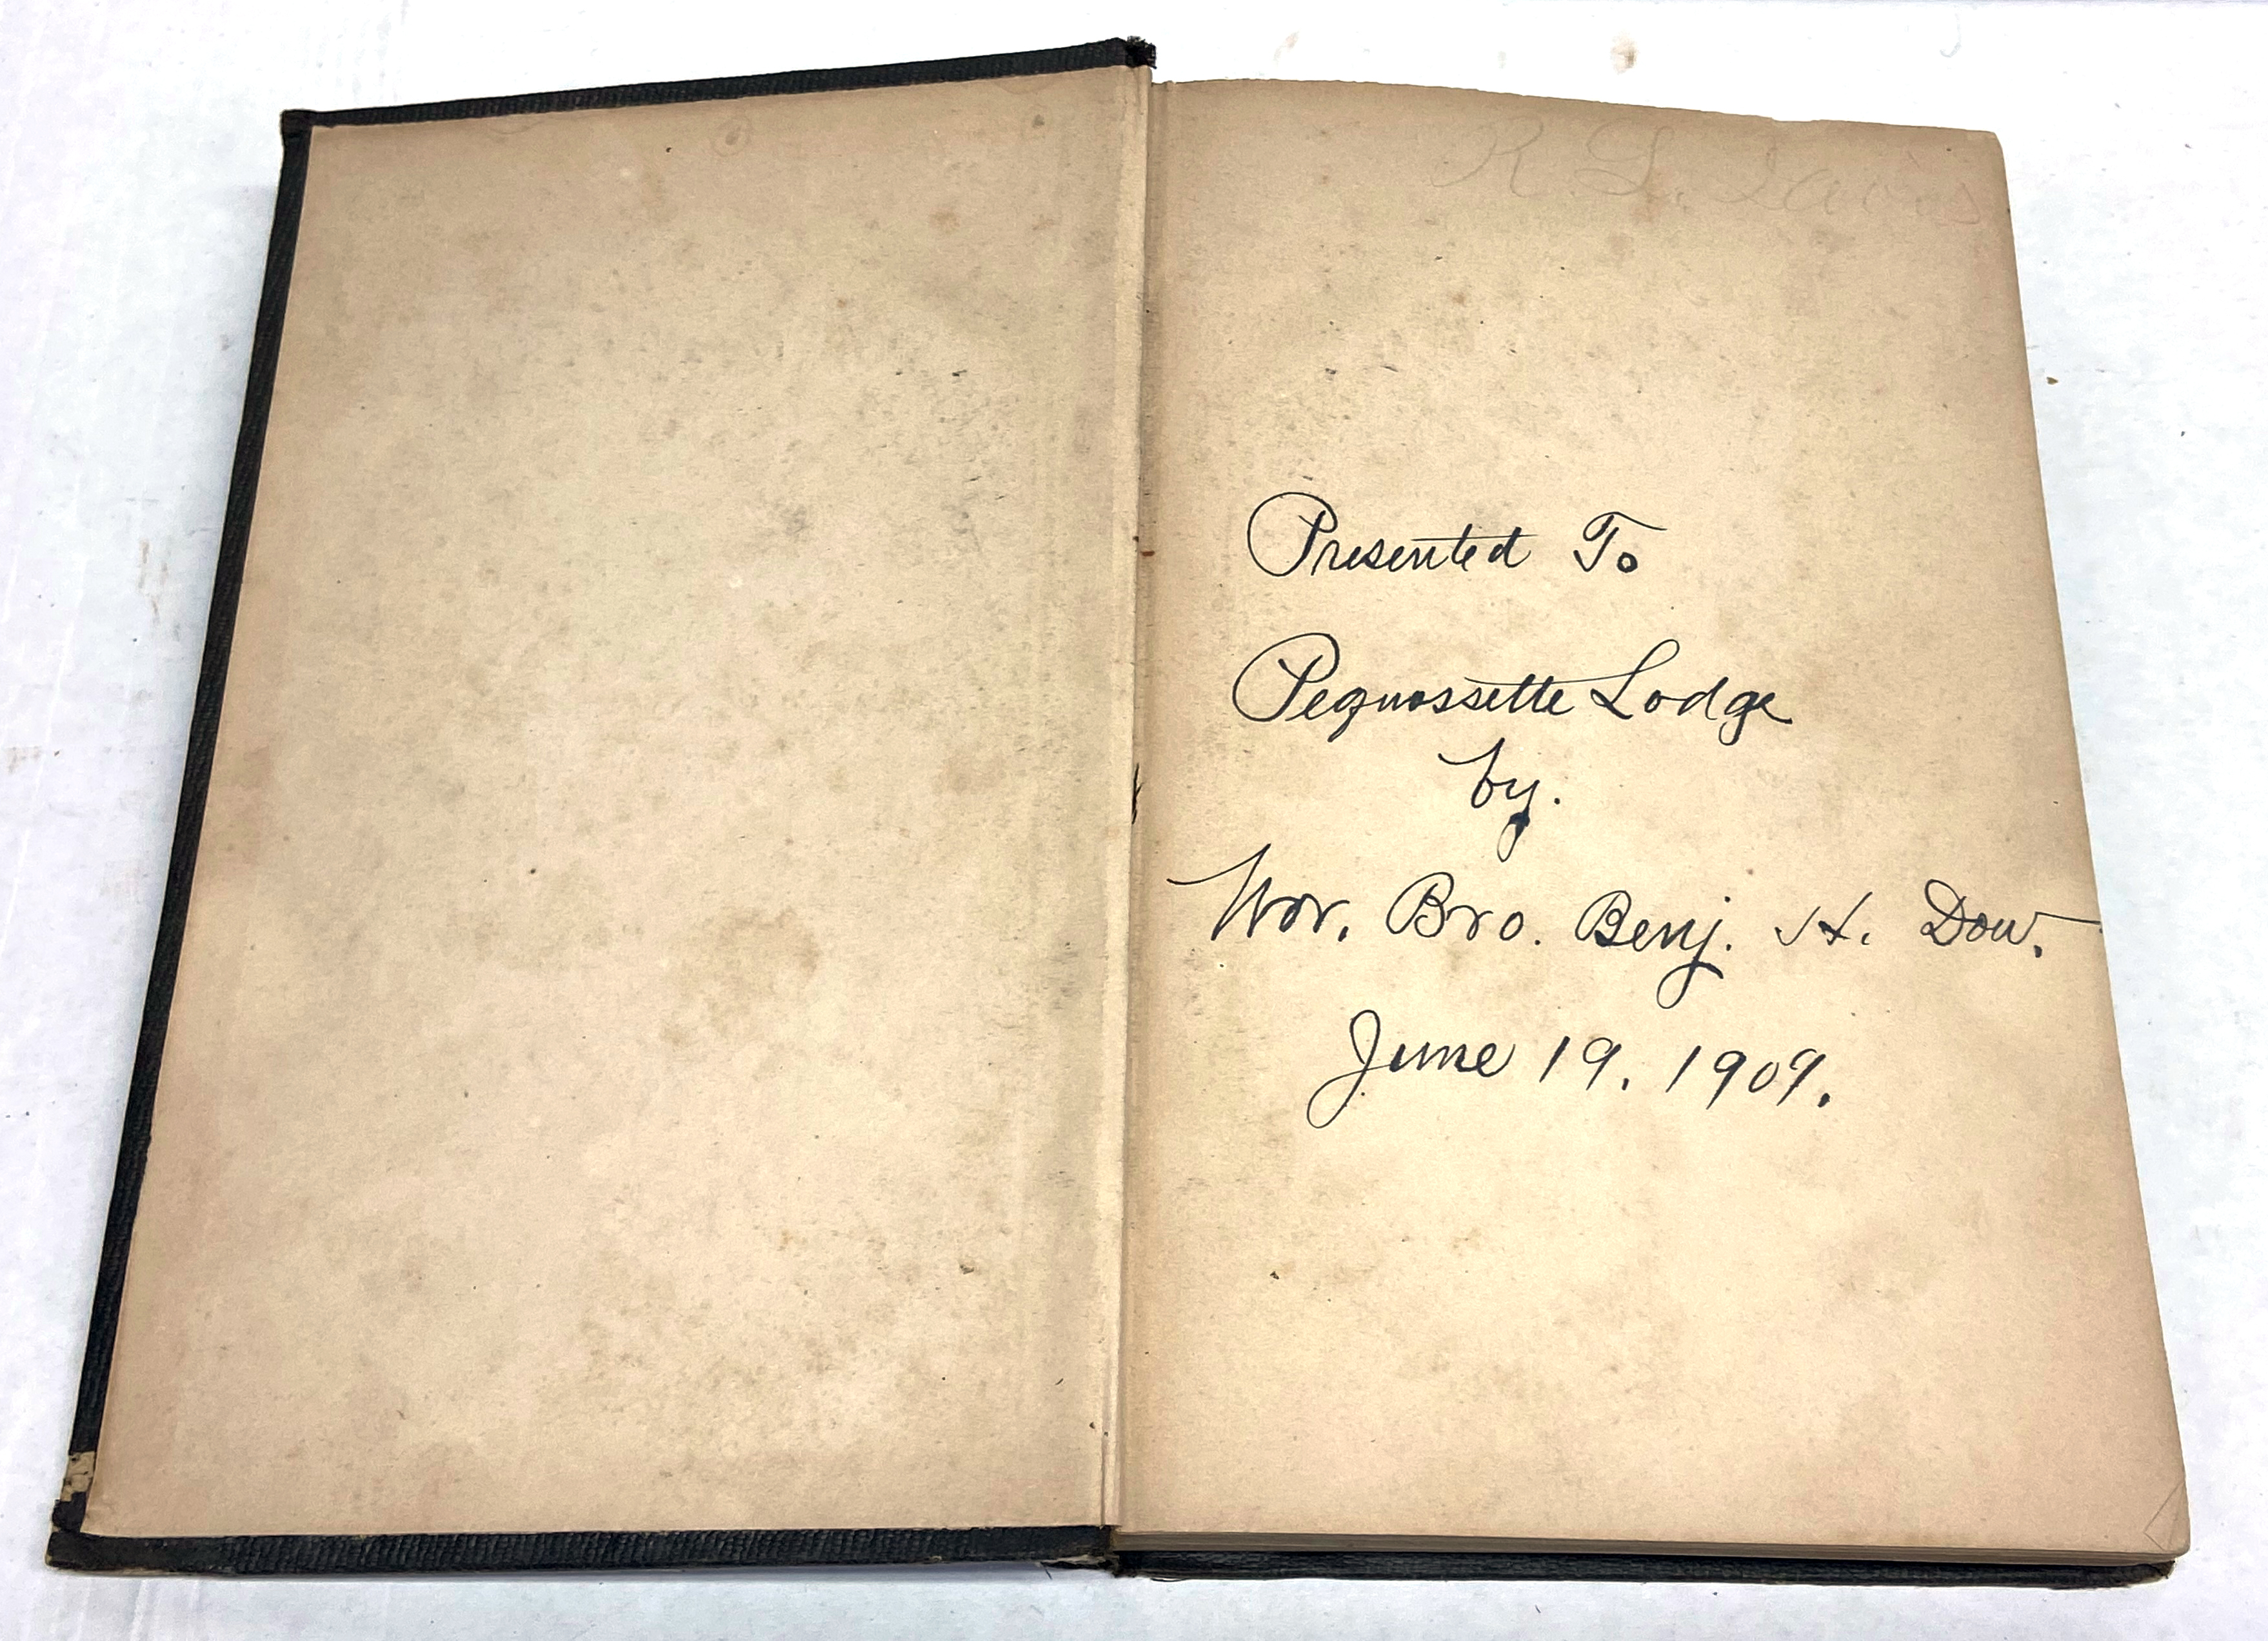 R. L. Davis
Presented To
Pequossette Lodge
by.
Wor. Bro. Benj. H. Dow.
June 19. 1909.